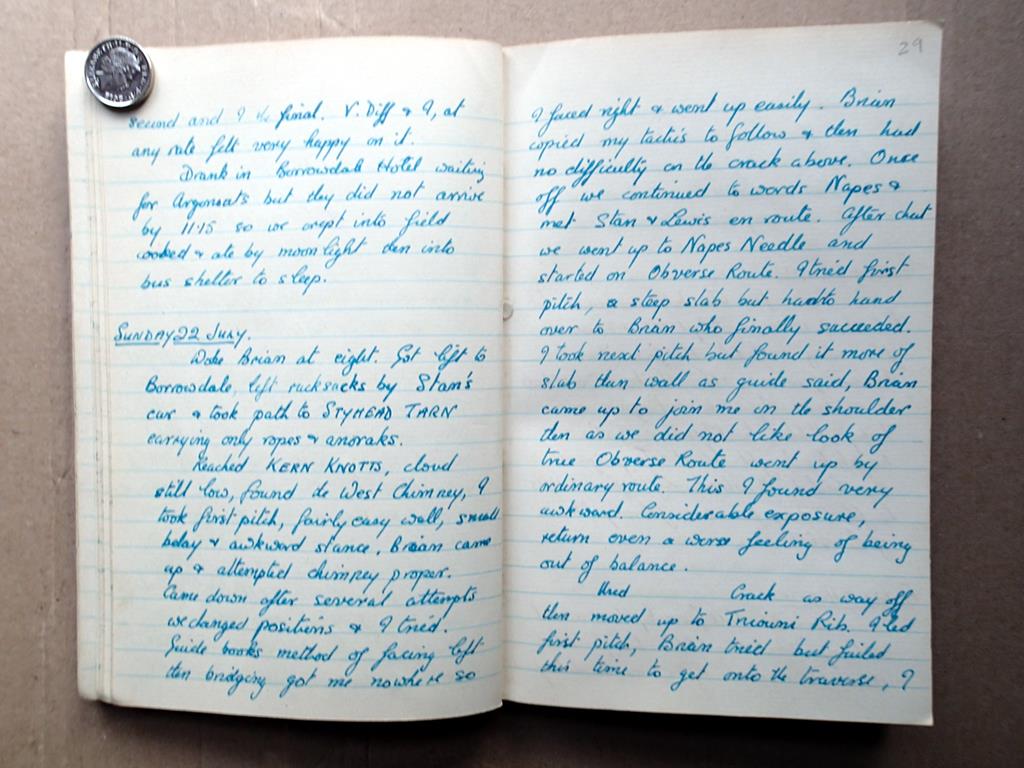 second and I the final. V. Diff & I, at
any rate felt very happy on it.
Drank in Borrowdale Hotel waiting
for Argonauts but they did not arrive
by 11.15 so we crept into field
cooked & ate by moonlight then into
bus shelter to sleep.
SUNDAY 22 JULY.
Woke Brian at eight. Got lift to
Borrowdale, left rucksacks by Stan's
car & took path to STYHEAD TARN
carrying only ropes & anoraks.
Reached KERN KNOTTS, cloud
still low, found the West Chimney, I
took first pitch, fairly easy wall, small
belay & awkward stance. Brian came
up & attempted chimney proper.
Came down after several attempts
we changed positions & I tried.
Guide books method of facing left
then bridging got me nowhere so
29
I faced right & went up easily. Brian
copied my tactics to follow & then had
no difficulty on the crack above. Once
off we continued to words Napes &
met Stan & Lewis en route. After chat
we went up to Napes Needle and
started on Obverse Route. I tried first
pitch, a steep slab but had to hand
over to Brian who finally succeeded.
I took next pitch but found it more of
slab than wall as guide said, Brian
came up to join me on the shoulder
then as we did not like look of
true Obverse Route went up by
ordinary route. This I found very
awkward. Considerable exposure,
return even a worse feeling of being
out of balance.
Used Crack as way off
then moved up to Tricouni Rib. I led
first pitch, Brian tried but failed
this time to get onto the traverse, I